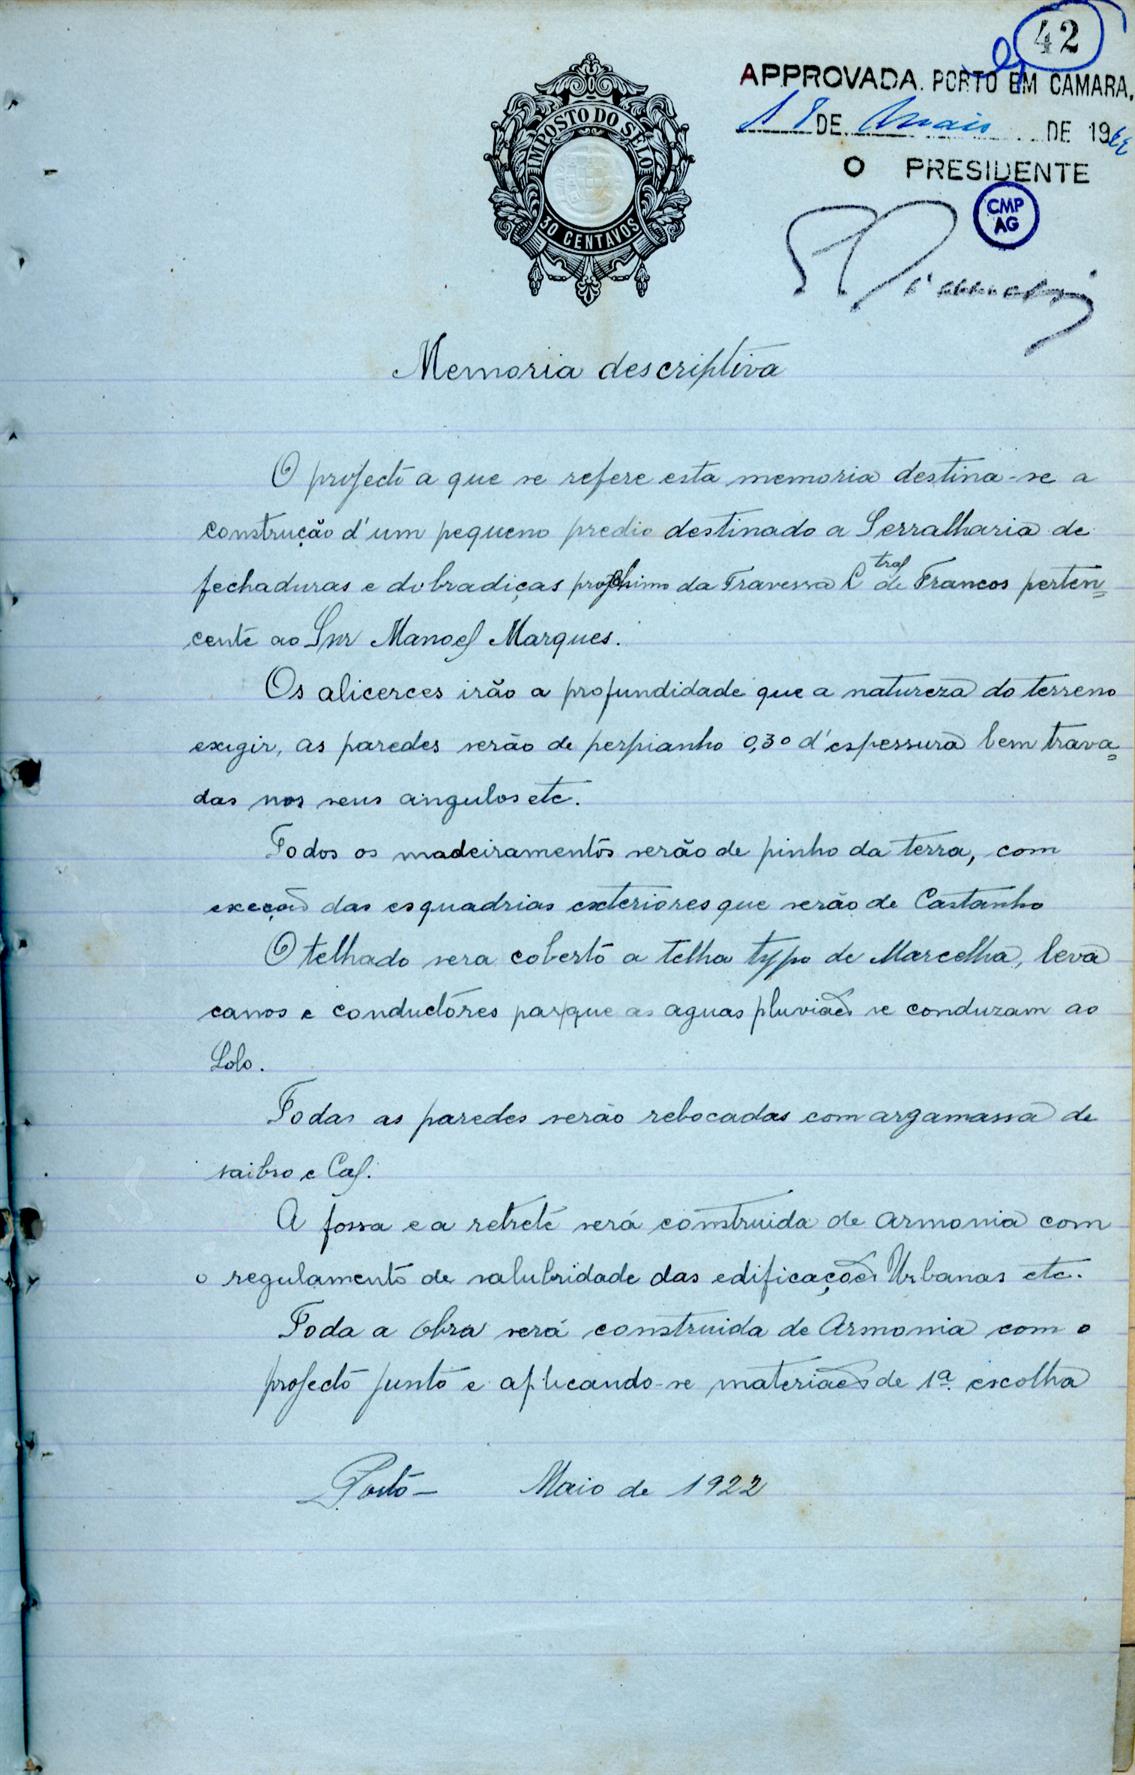 42
APPROVADA. PORTO EM CAMARA,
18 DE Maio DE 1922
O PRESIDENTE
CMP
AG
IMPOSTO DO SELO
30 CENTAVOS
Memoria descriptiva
O projecto a que se refere esta memoria destina-se a
construção d'um pequeno predio destinado a Serralharia de
fechaduras e dobradiças proximo da Travessa C.tral de Francos perten=
cente ao Snr Manoel Marques.
Os alicerces irão a profundidade que a natureza do terreno
exigir, as paredes serão de perpianho 0,30 d'espessura bem trava=
das nos seus angulos etc.
Todos os madeiramentos serão de pinho da terra, com
exeção das esquadrias exteriores que serão de Castanho
O telhado sera coberto a telha typo de Marcelha, leva
canos e conductores para que as aguas pluviaes se conduzam ao
Solo.
Todas as paredes serão rebocadas com argamassa de
saibro e Cal.
A fossa e a retrete será construida de armonia com
o regulamento de salubridade das edificações Urbanas etc.
Toda a obra será construida de Armonia com o
projecto junto e aplicando-se materiaes de 1ª. escolha
Porto - Maio de 1922